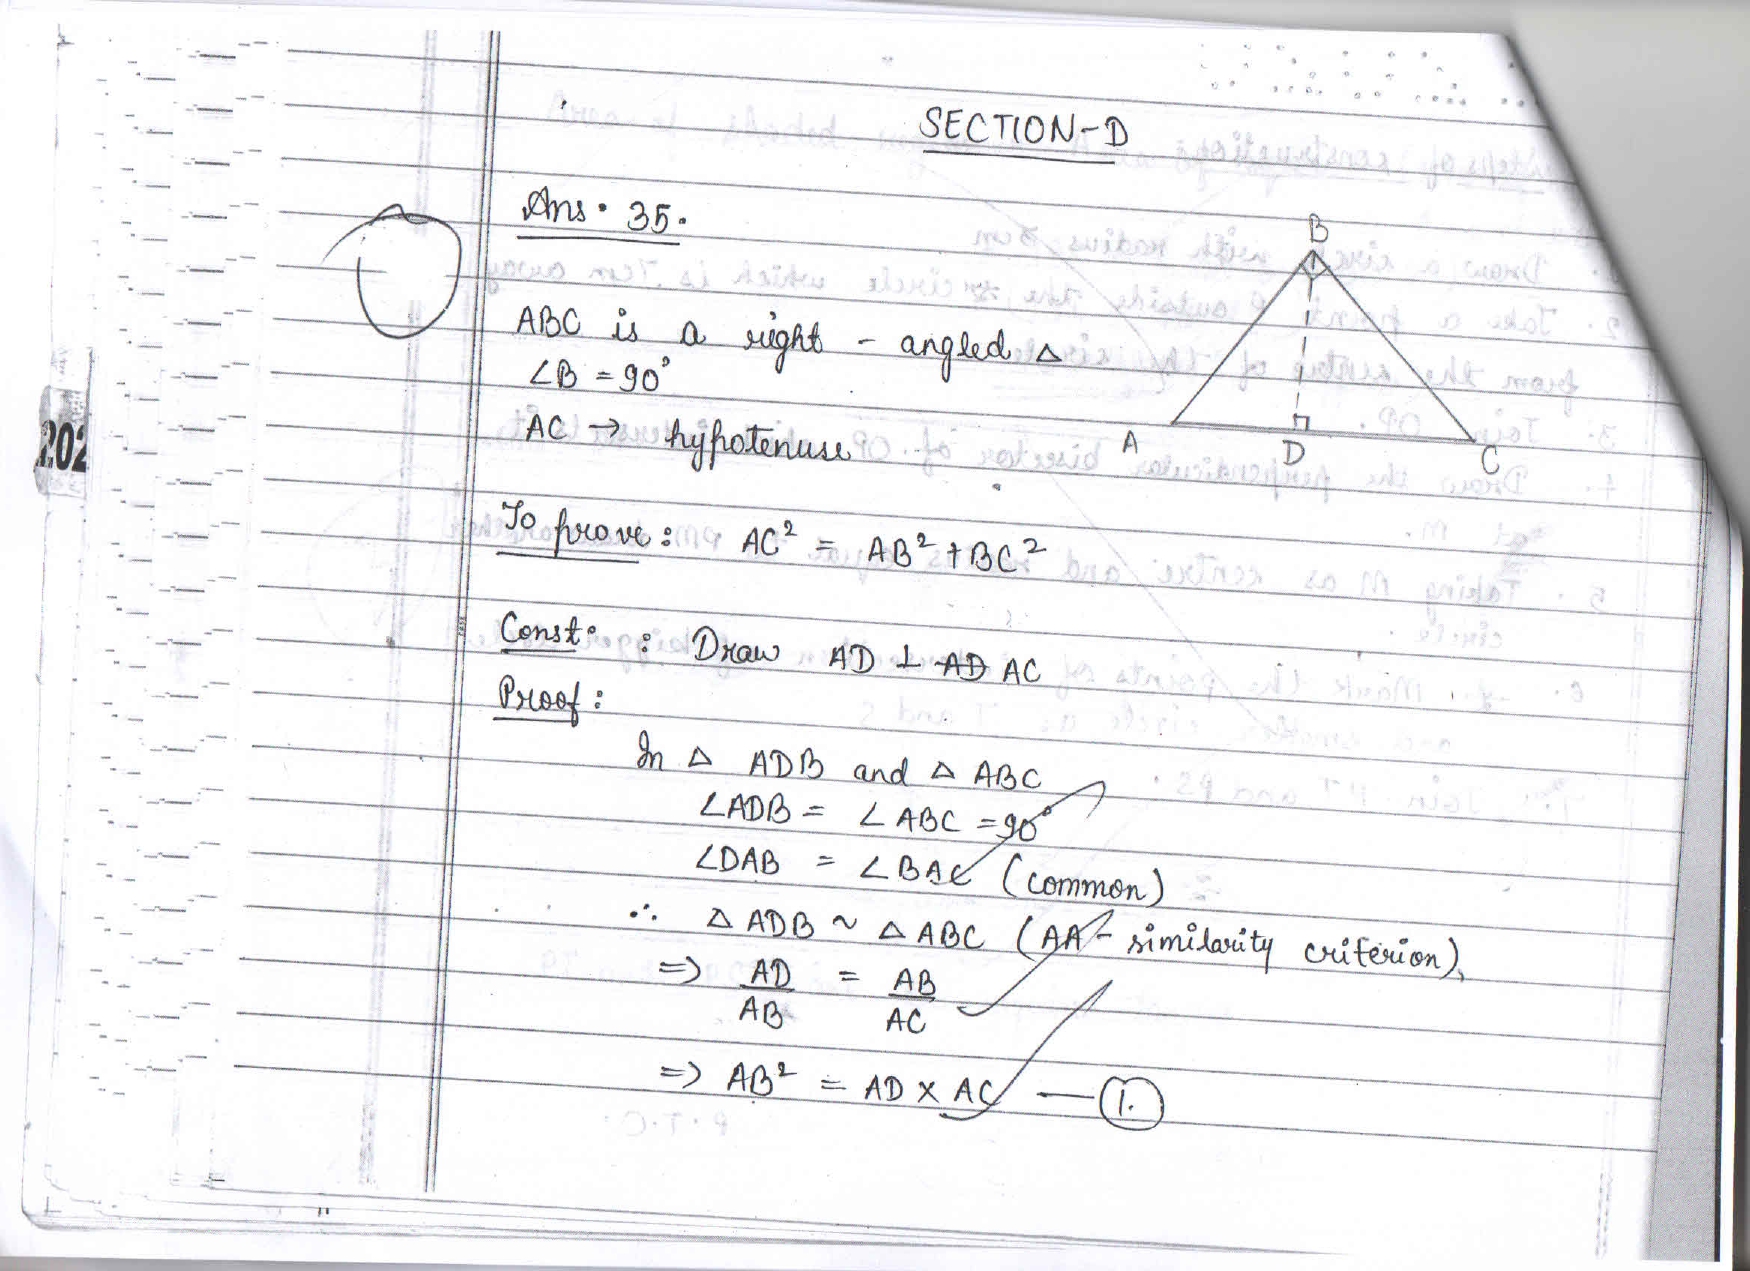 SECTION-D
Ans. 35.
B
ABC is a right - angled △
∠B = 90°
AC → hypotenuse
A D C
To prove: AC² = AB² + BC²
Const. : Draw AD ⊥ AD AC
Proof :
In △ ADB and △ ABC
∠ADB = ∠ABC = 90°
∠DAB = ∠BAC (common)
∴ △ ADB ~ △ ABC (AA - similarity criterion),
=> AD/AB = AB/AC
=> AB² = AD × AC — 1.
202